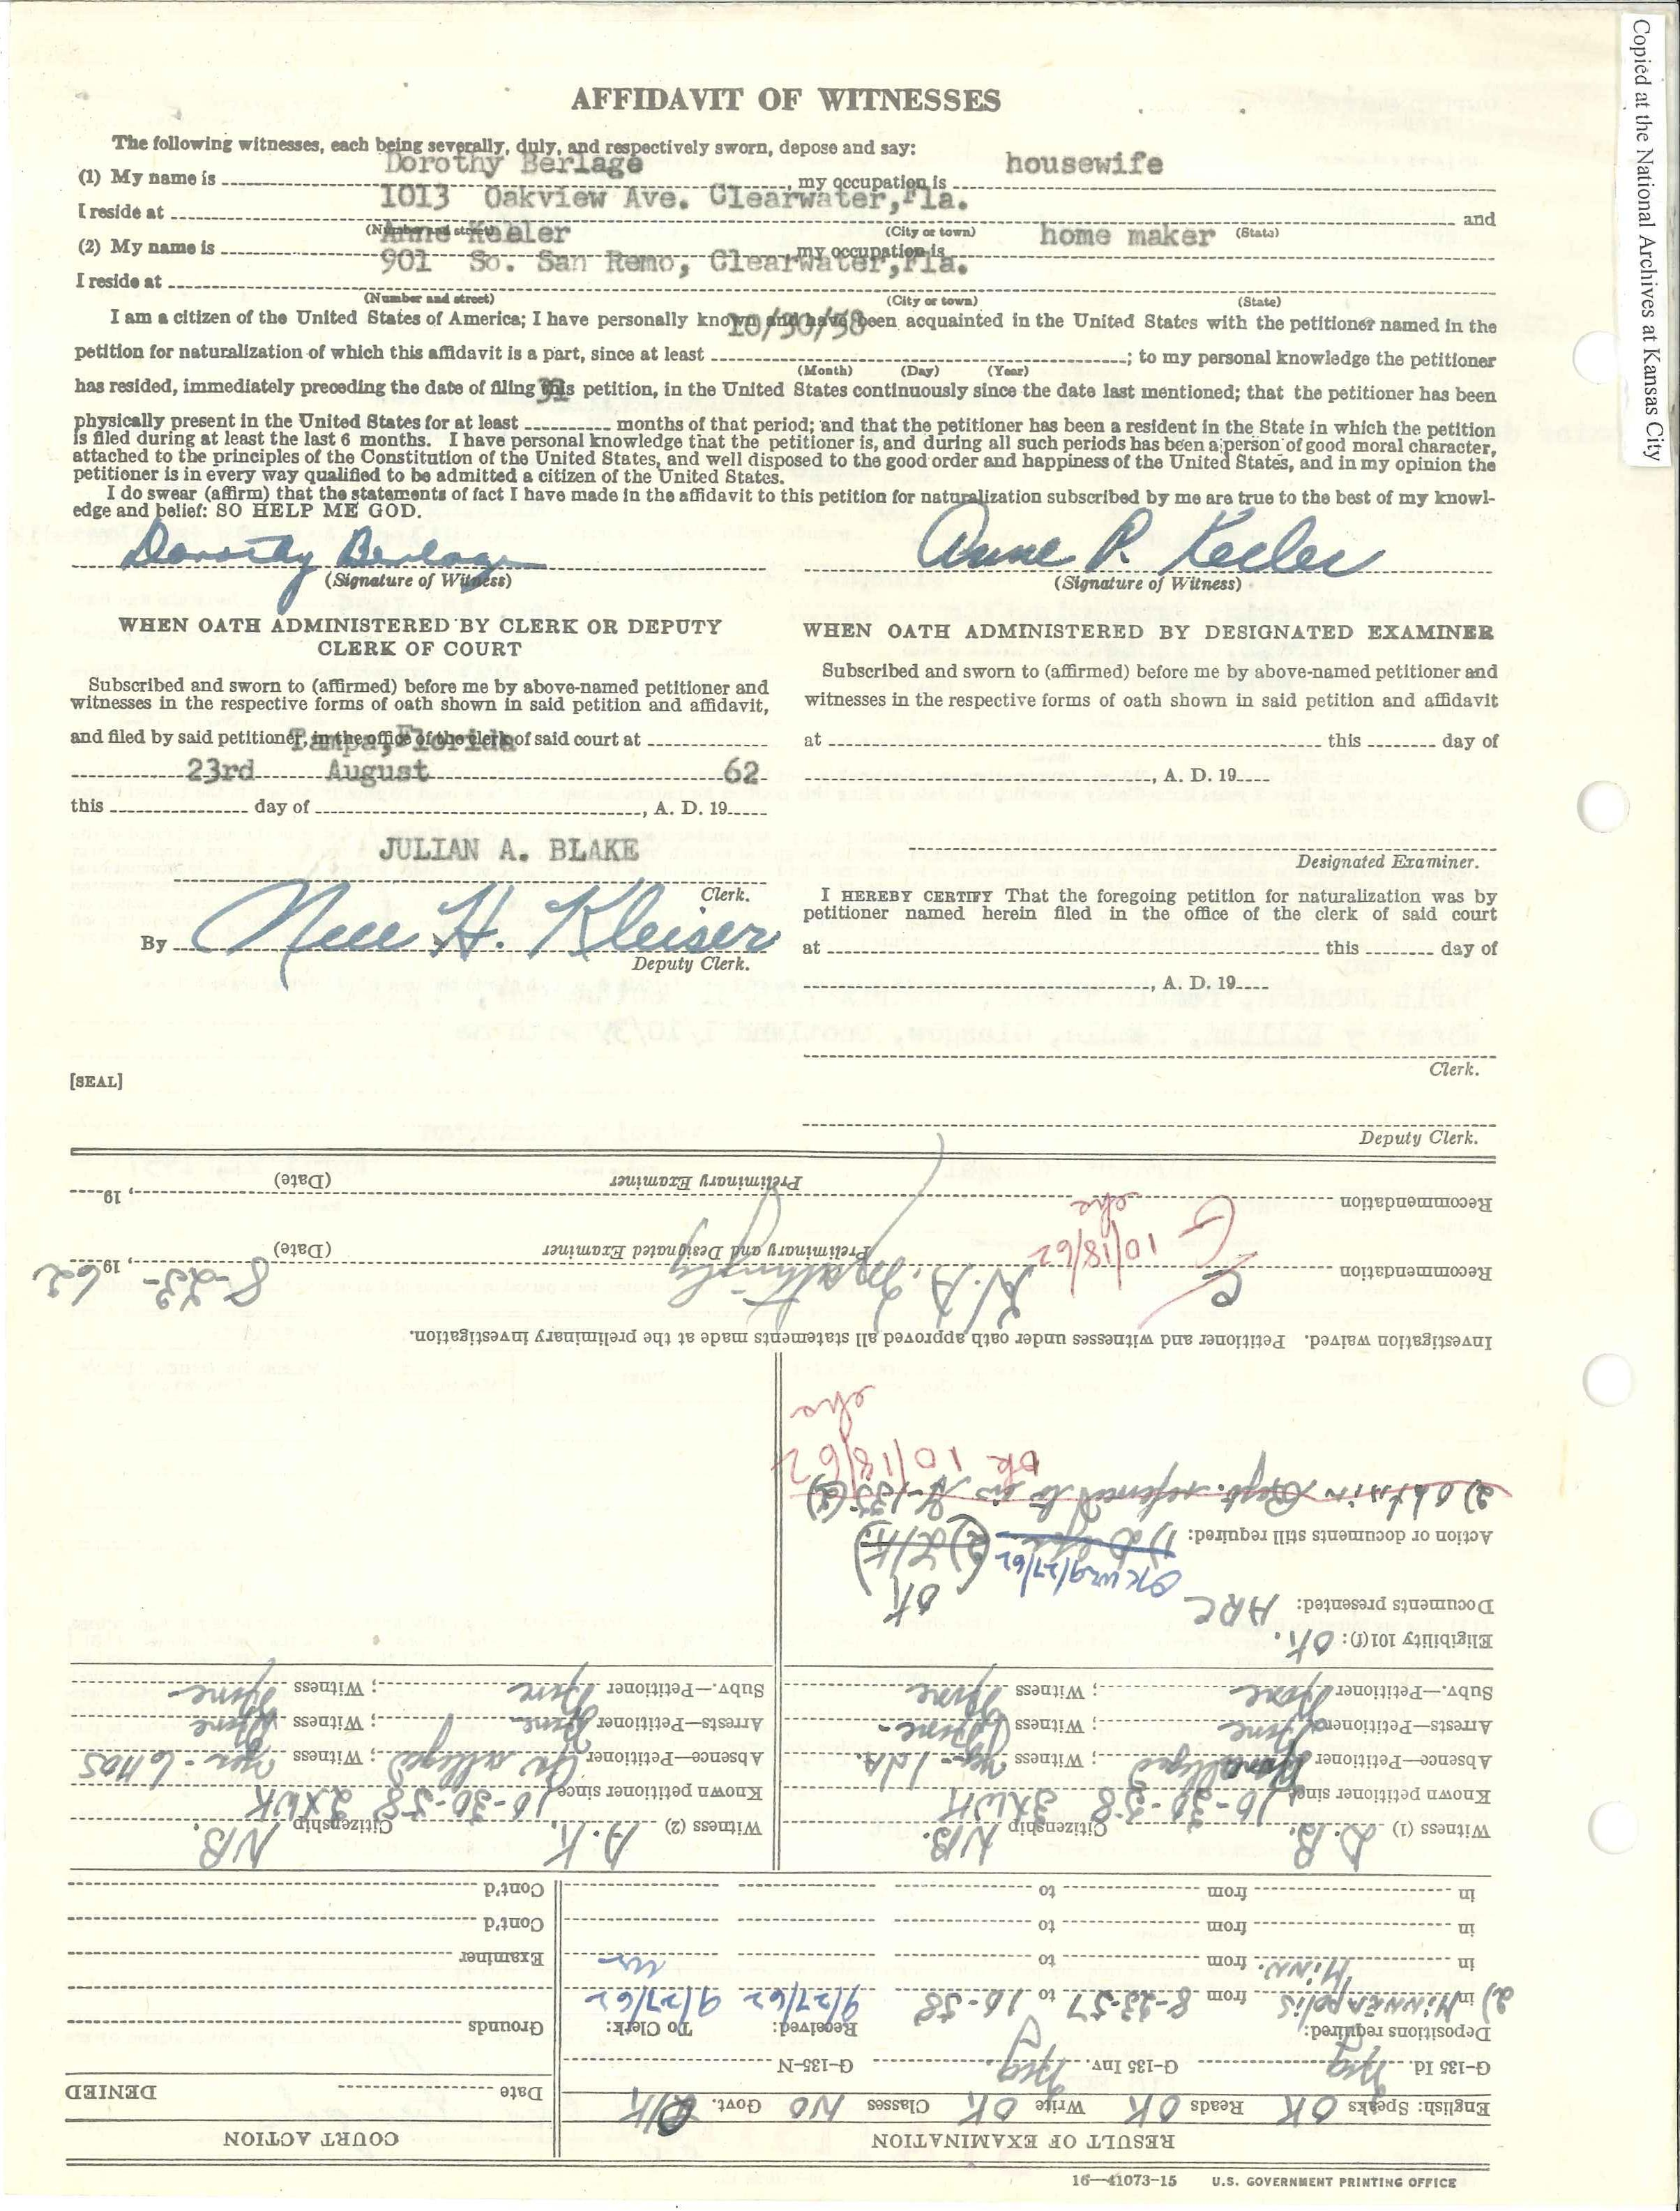 Copied at the National Archives at Kansas City
AFFIDAVIT OF WITNESSES
The following witnesses, each being severally, duly, and respectively sworn, depose and say:
(1) My name is Dorothy Berlage, my occupation is housewife
I reside at 1013 Oakview Ave. Clearwater, Fla. and
(Number and street) (City or town) (State)
(2) My name is Anne Keeler my occupation is home maker
I reside at 901 So. San Remo, Clearwater, Fla.
(Number and street) (City or town) (State)
I am a citizen of the United States of America; I have personally known and have been acquainted in the United States with the petitioner named in the
petition for naturalization of which this affidavit is a part, since at least 10/30/58; to my personal knowledge the petitioner
(Month) (Day) (Year)
has resided, immediately preceding the date of filing this petition, in the United States continuously since the date last mentioned; that the petitioner has been
physically present in the United States for at least 31 months of that period; and that the petitioner has been a resident in the State in which the petition
is filed during at least the last 6 months. I have personal knowledge that the petitioner is, and during all such periods has been a person of good moral character,
attached to the principles of the Constitution of the United States, and well disposed to the good order and happiness of the United States, and in my opinion the
petitioner is in every way qualified to be admitted a citizen of the United States.
I do swear (affirm) that the statements of fact I have made in the affidavit to this petition for naturalization subscribed by me are true to the best of my knowl-
edge and belief: SO HELP ME GOD.
Dorothy Berlage Anne P. Keeler
(Signature of Witness) (Signature of Witness)
WHEN OATH ADMINISTERED BY CLERK OR DEPUTY
CLERK OF COURT
Subscribed and sworn to (affirmed) before me by above-named petitioner and
witnesses in the respective forms of oath shown in said petition and affidavit,
and filed by said petitioner, in the office of the clerk of said court at
Tampa, Florida
this 23rd day of August, A. D. 19 62
JULIAN A. BLAKE
Clerk.
By Nell H. Kleiser
Deputy Clerk.
[SEAL]
WHEN OATH ADMINISTERED BY DESIGNATED EXAMINER
Subscribed and sworn to (affirmed) before me by above-named petitioner and
witnesses in the respective forms of oath shown in said petition and affidavit
at this day of
, A. D. 19
Designated Examiner.
I HEREBY CERTIFY That the foregoing petition for naturalization was by
petitioner named herein filed in the office of the clerk of said court
at this day of
, A. D. 19
Clerk.
Deputy Clerk.
RESULT OF EXAMINATION
English: Speaks OK Reads OK Write OK Classes NO Govt. OK
G-135 Id. Neg G-135 Inv. Neg G-135-N
Depositions required: Received: To Clerk:
2) in Minneapolis from 8-23-57 to 10-58 9/27/62 9/27/62
Minn.
in from to
in from to
in from to
COURT ACTION
DENIED
Date
Grounds
Examiner
Cont'd
Cont'd
Witness (1) D. B. Citizenship NB.
Known petitioner since 10-30-58 3XWK
Absence—Petitioner None alleged; Witness 1 da.
Arrests—Petitioner None; Witness None
Subv.—Petitioner None; Witness None
Witness (2) A. K. Citizenship NB.
Known petitioner since 10-30-58 2XWK
Absence—Petitioner alleged; Witness 6 mos
Arrests—Petitioner None; Witness None
Subv.—Petitioner None; Witness None
Eligibility 101(f): OK.
Documents presented: ARC
OK 9/27/62 OK
Action or documents still required: 1) 2)
2) Obtain Rept. referred to in G-135(3)
OK 10/18/62
Investigation waived. Petitioner and witnesses under oath approved all statements made at the preliminary investigation.
Recommendation 8-23-62
Preliminary and Designated Examiner (Date) , 19
G 10/18/62
Recommendation
Preliminary Examiner (Date) , 19
16—41073-15 U.S. GOVERNMENT PRINTING OFFICE